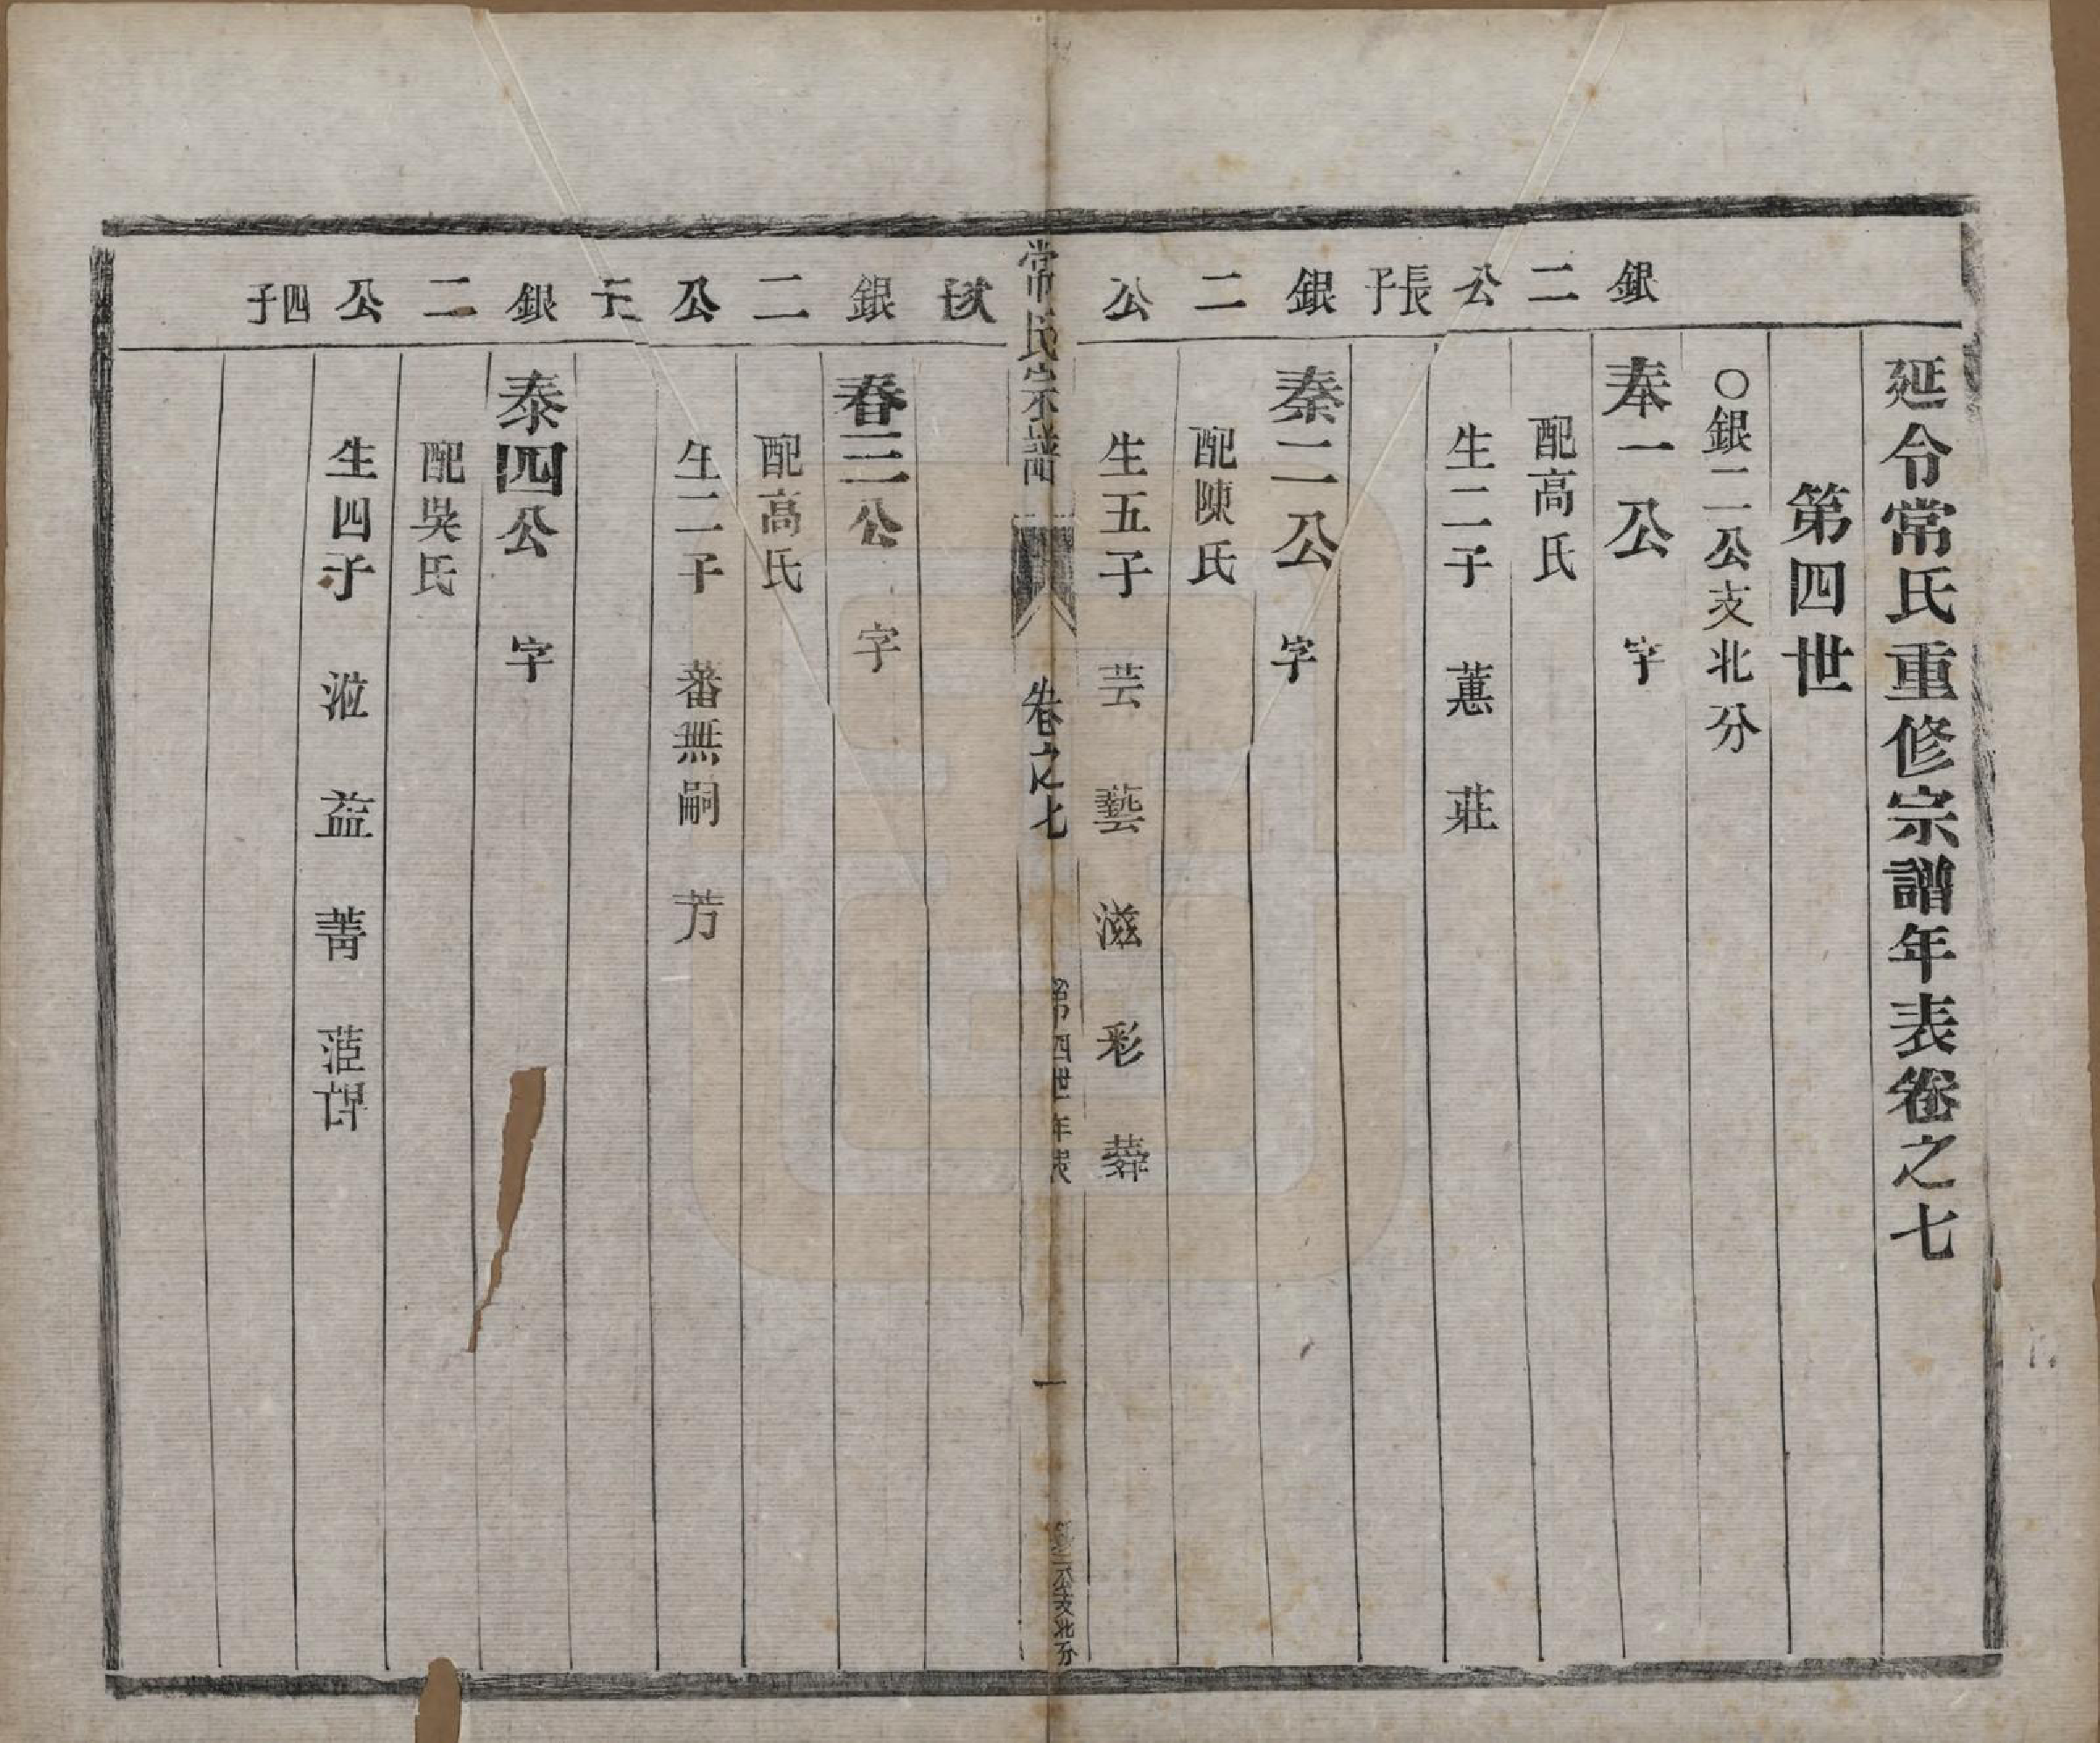 延令常氏重修宗譜年表卷之七
第四世
○銀二公支北分
銀二公長子
奉一公 字
配高氏
生二子 蕙 莊
銀二公次子
秦二公 字
配陳氏
生五子 芸 藝 滋 彩
常氏宗譜 卷之七 第四世年表 一 銀二公支北分
銀二公三子
春三公 字
配高氏
生二子 蕃無嗣 芳
銀二公四子
泰四公 字
配吳氏
生四子 益 菁